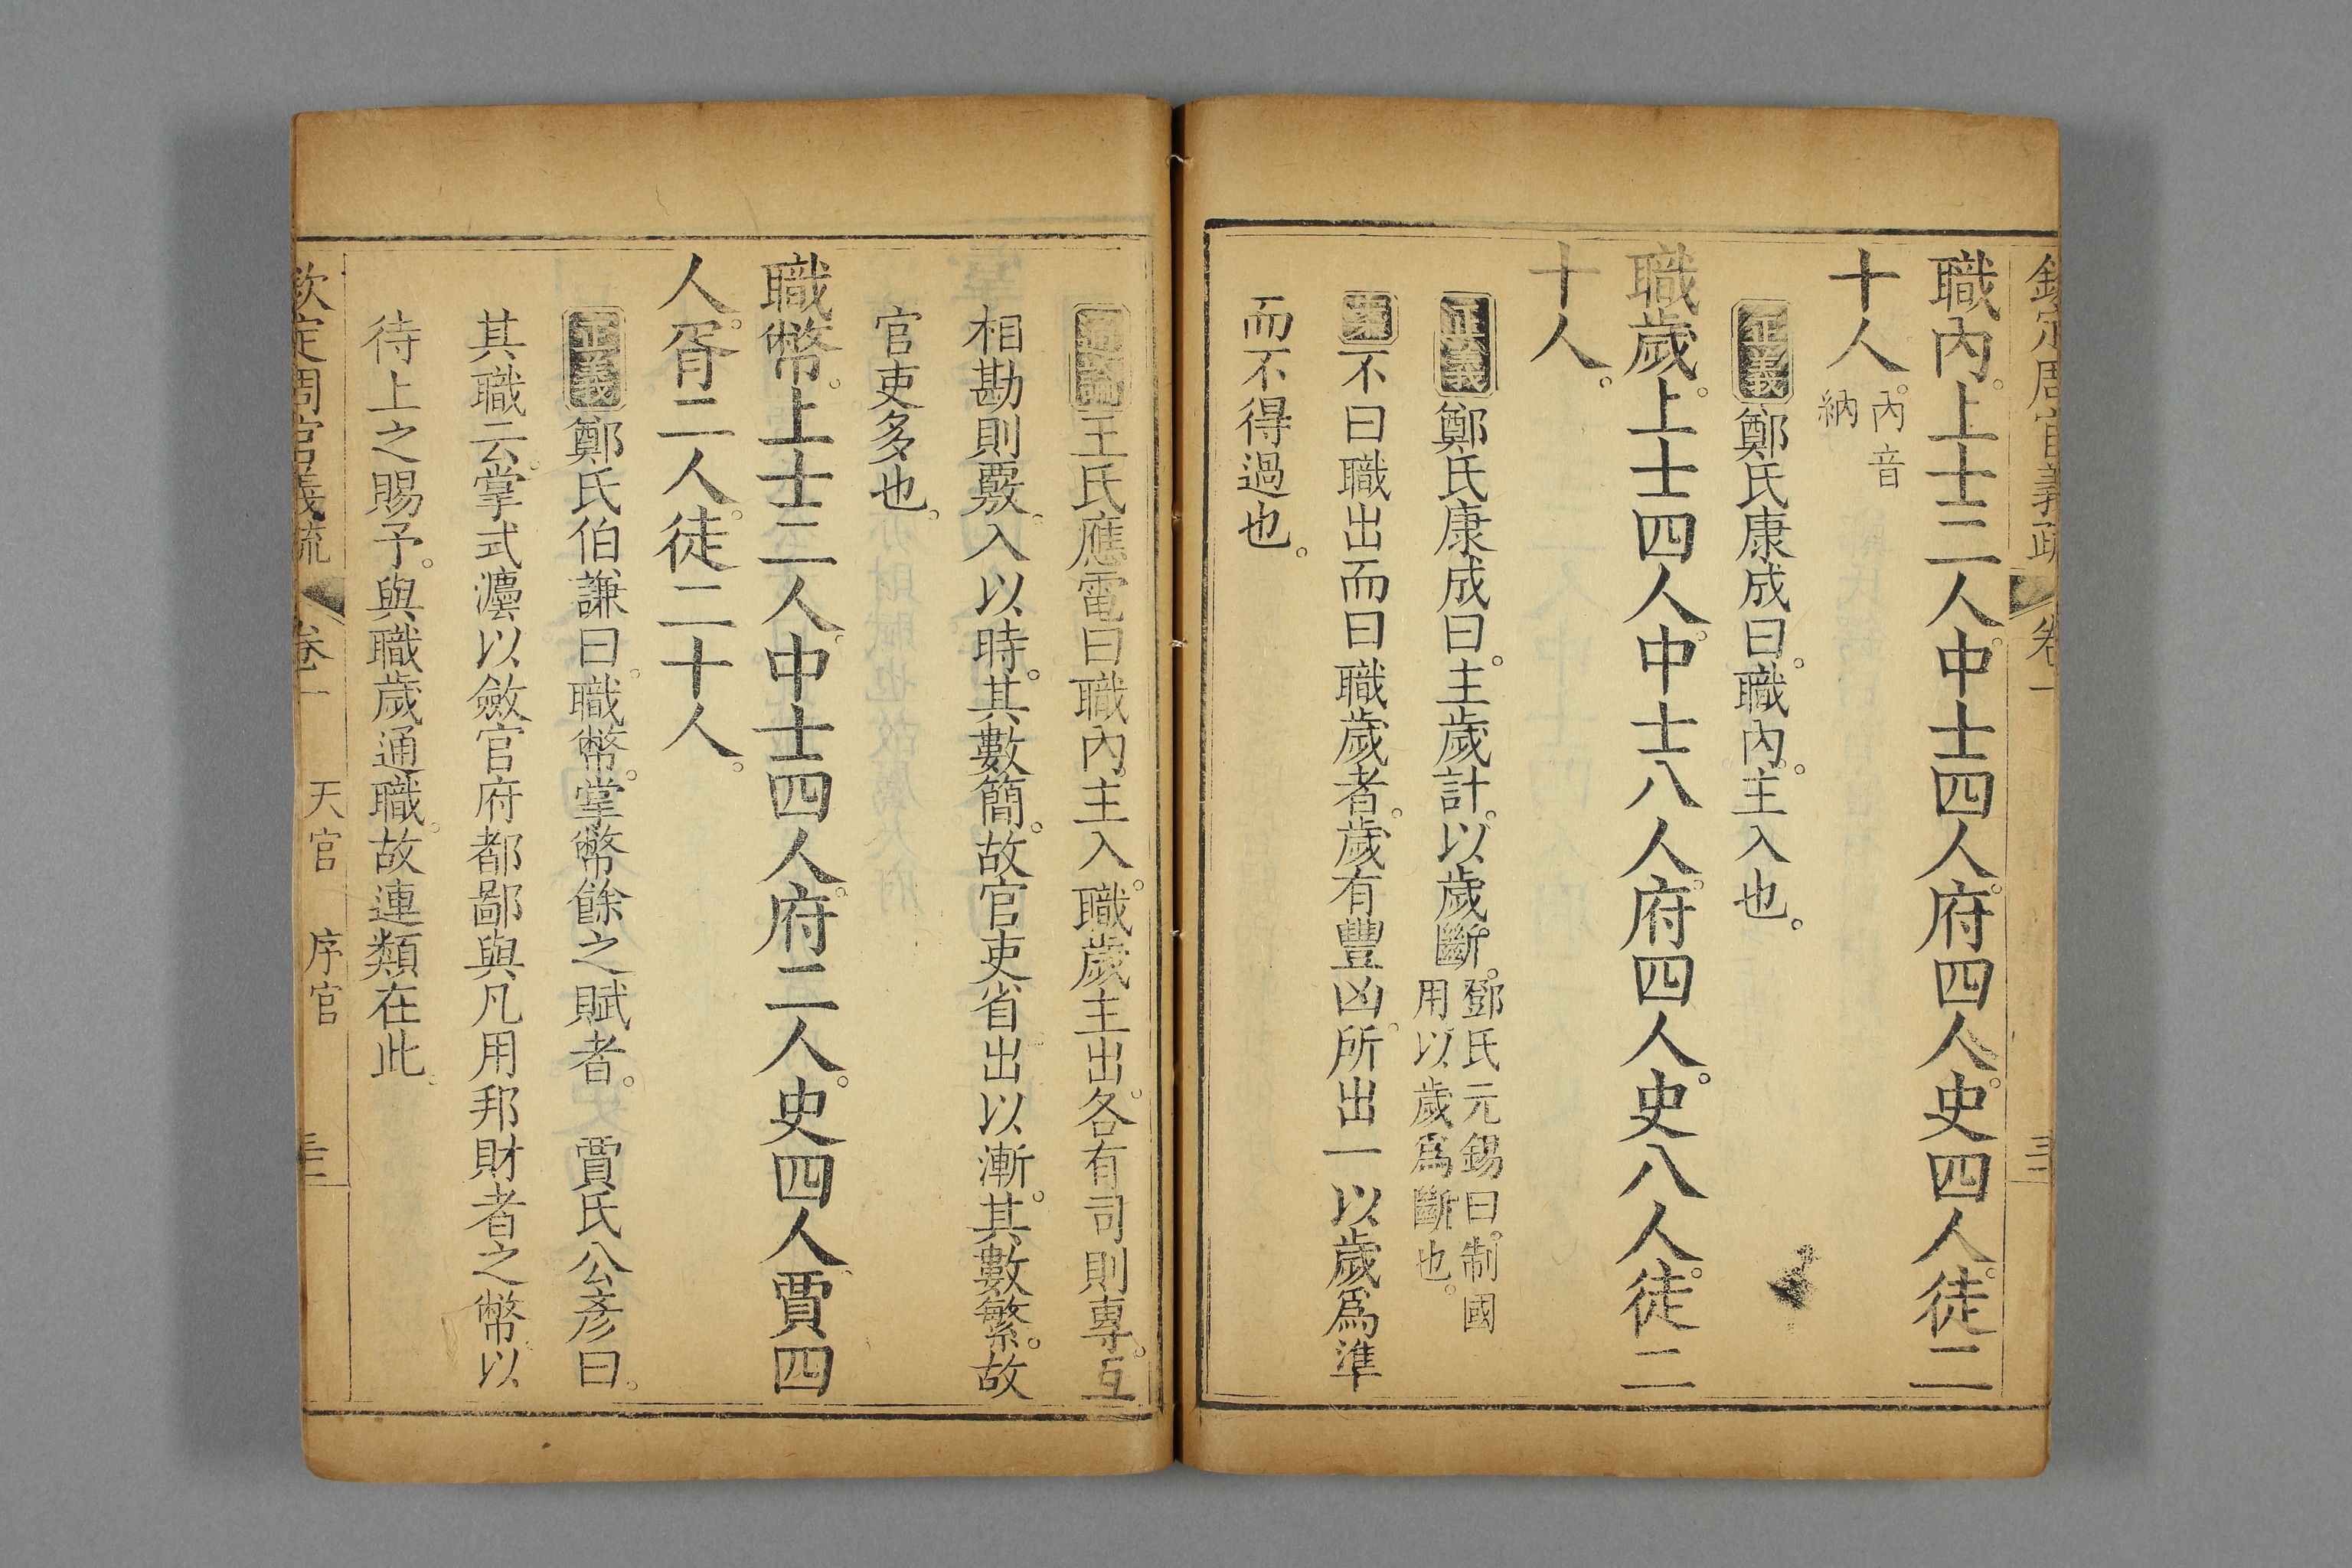 欽定周官義疏 卷一
職內。上士二人。中士四人。府四人。史四人。徒二
十人。內音納
正義鄭氏康成曰。職內。主入也。
職歲。上士四人。中士八人。府四人。史八人。徒二
十人。
正義鄭氏康成曰。主歲計。以歲斷。鄧氏元錫曰。制國
用以歲爲斷也。
案不曰職出而曰職歲者。歲有豐凶。所出一以歲爲準
而不得過也。
通論王氏應電曰職內主入。職歲主出。各有司則專。互
相勘則覈。入以時。其數簡。故官吏省。出以漸。其數繁。故
官吏多也。
職幣。上士二人。中士四人。府二人。史四人。賈四
人。胥二人。徒二十人。
正義鄭氏伯謙曰。職幣。掌幣餘之賦者。 賈氏公彥曰。
其職云。掌式灋以斂官府都鄙與凡用邦財者之幣。以
待上之賜予。與職歲通職。故連類在此。
欽定周官義疏 卷一 天官 序官